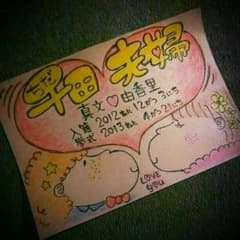 平田 夫婦
貴文♡由香里
入籍 2012年 12か 3にち
挙式 2013年 4か 21にち
LOVE
YOU